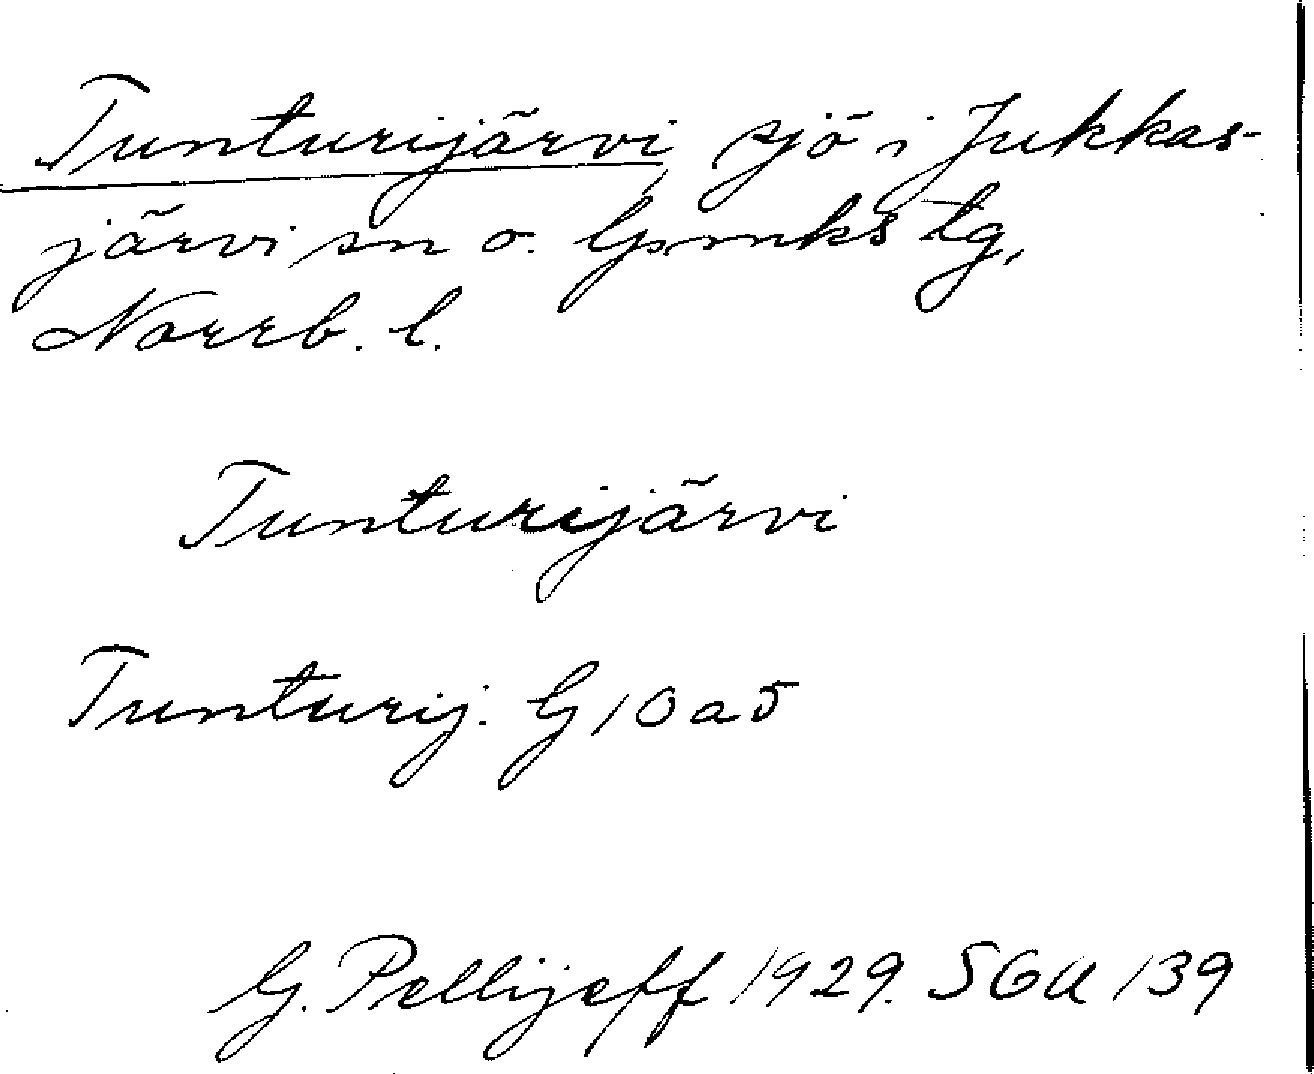 Tunturijärvi, sjö i Jukkas-
järvi sn o. lpmks tg,
Norrb. l.
Tunturijärvi
Tunturij. G 10 a 5
G. Pellijeff 1929. SGU 139